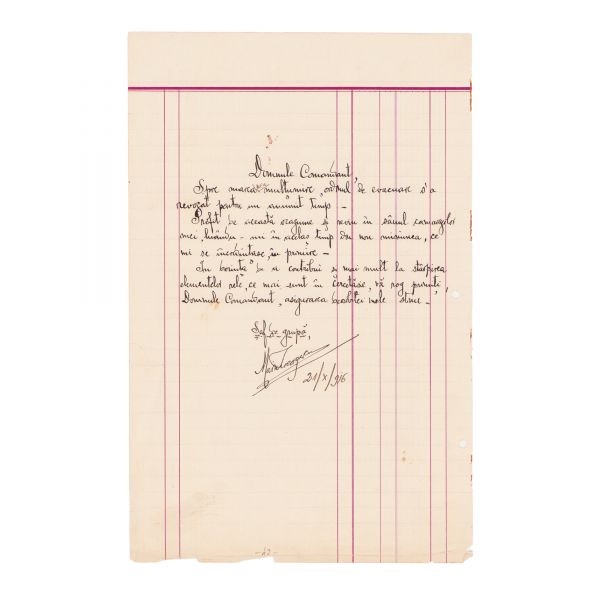 Domnule Comandant,
Spre marea mulțumire, ordinul de evacuare s'a
revocat pentru un anumit timp. –
Profit de această ocaziune și revin în sânul camarazilor
mei, luându-mi în acelaș timp din nou misiunea, ce
mi se încredințase, în primire. –
În dorința de a contribui și mai mult la stârpirea
elementelor rele, ce mai sunt în Cercetășie, vă rog primiți,
Domnule Comandant, asigurarea stimei mele
Șef de grupă,
21/X/916
- 23 -